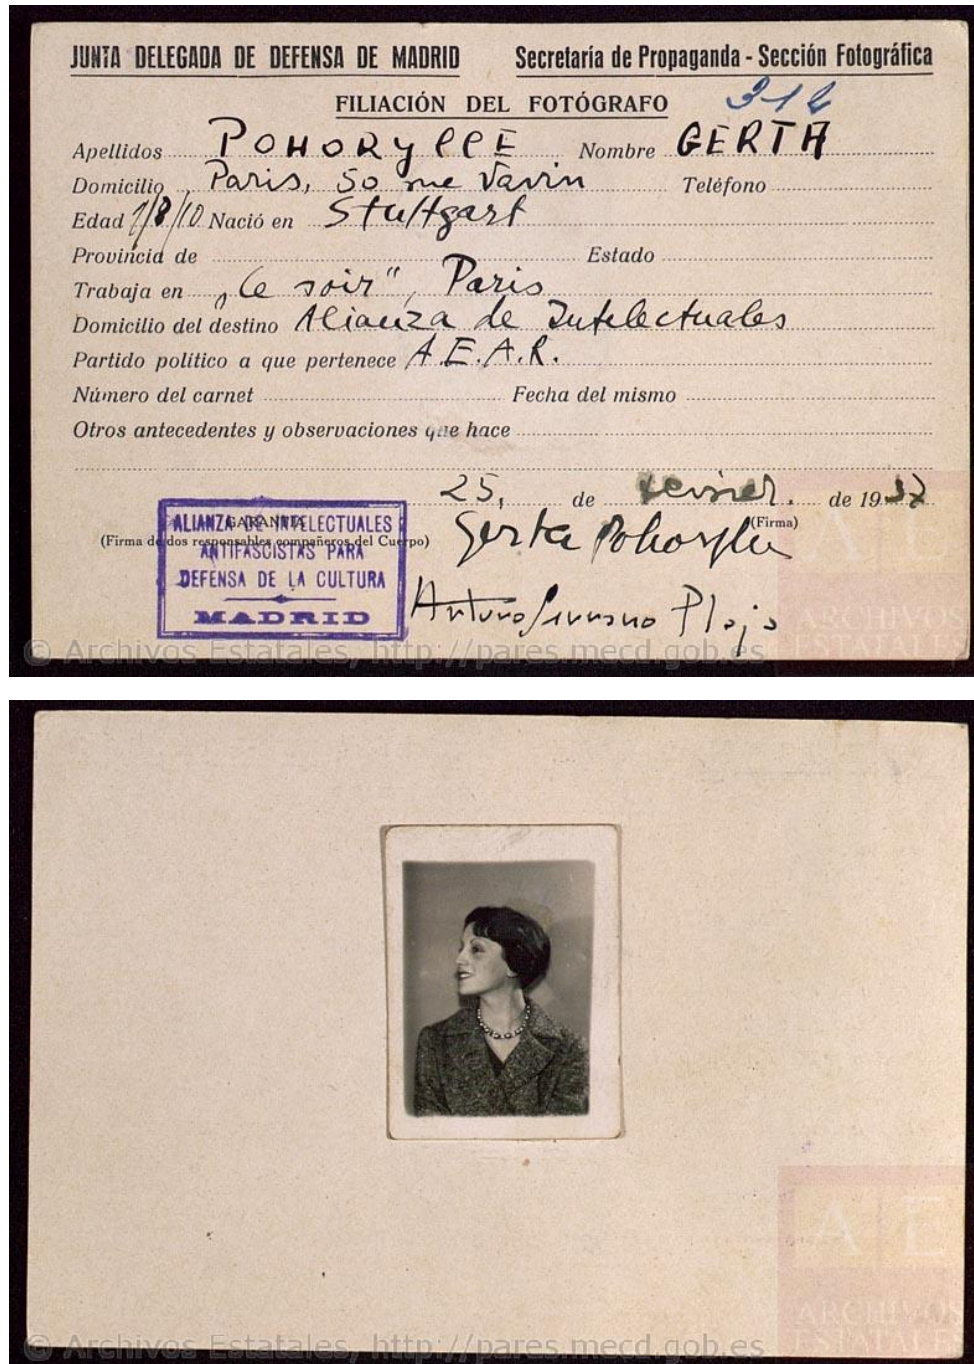 JUNTA DELEGADA DE DEFENSA DE MADRID Secretaría de Propaganda - Sección Fotográfica
FILIACIÓN DEL FOTÓGRAFO
Apellidos POHORYLLE Nombre GERTA
Domicilio Paris, 50 rue Vavin Teléfono
Edad 1/8/10 Nació en Stuttgart
Provincia de Estado
Trabaja en „Ce soir“, Paris
Domicilio del destino Alianza de Intelectuales
Partido político a que pertenece A.E.A.R.
Número del carnet Fecha del mismo
Otros antecedentes y observaciones que hace
25, de de 1937
GARANTIA (Firma)
(Firma de dos responsables compañeros del Cuerpo)
Gerta Pohorylle
ALIANZA DE INTELECTUALES
ANTIFASCISTAS PARA
DEFENSA DE LA CULTURA
MADRID
Arturo Serrano Plaja
A E
ARCHIVOS
ESTATALES
© Archivos Estatales, http://pares.mecd.gob.es
A E
ARCHIVOS
ESTATALES
© Archivos Estatales, http://pares.mecd.gob.es